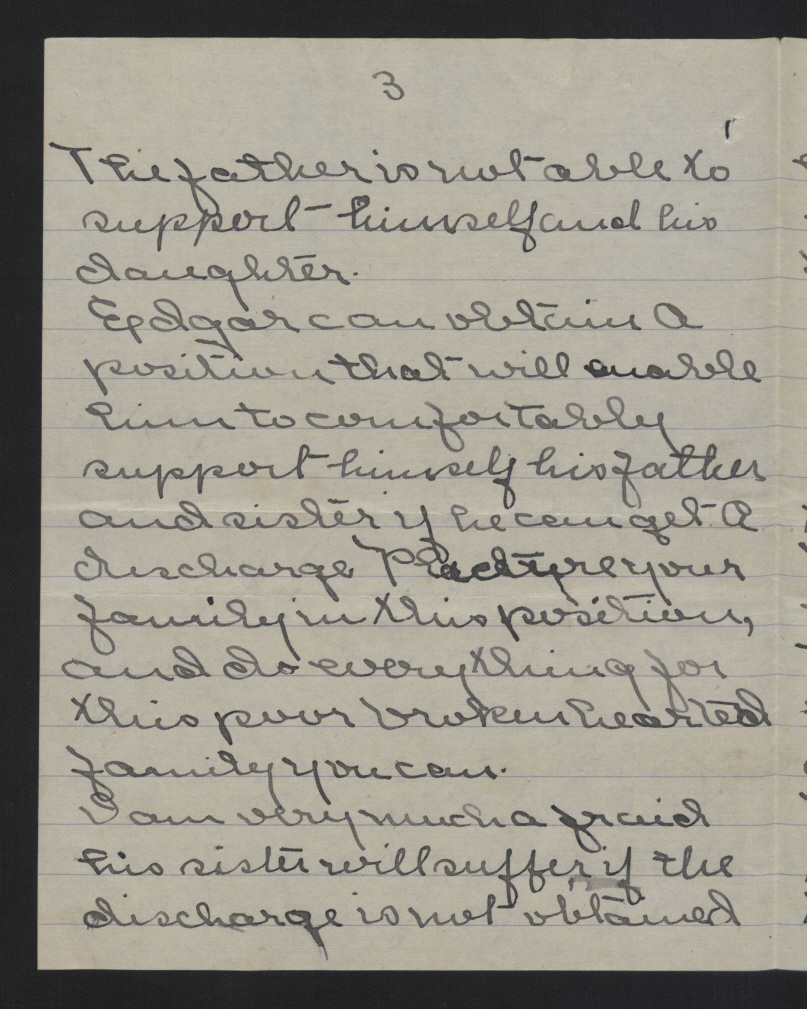 3
The father is not able to
support himself and his
daughter.
Edgar can obtain A
position that will enable
him to comfortably
support himself his father
and sister if he can get A
discharge Picture your
family in this position,
and do everything for
this poor broken hearted
family you can.
I am very much afraid
his sister will suffer if the
discharge is not obtained